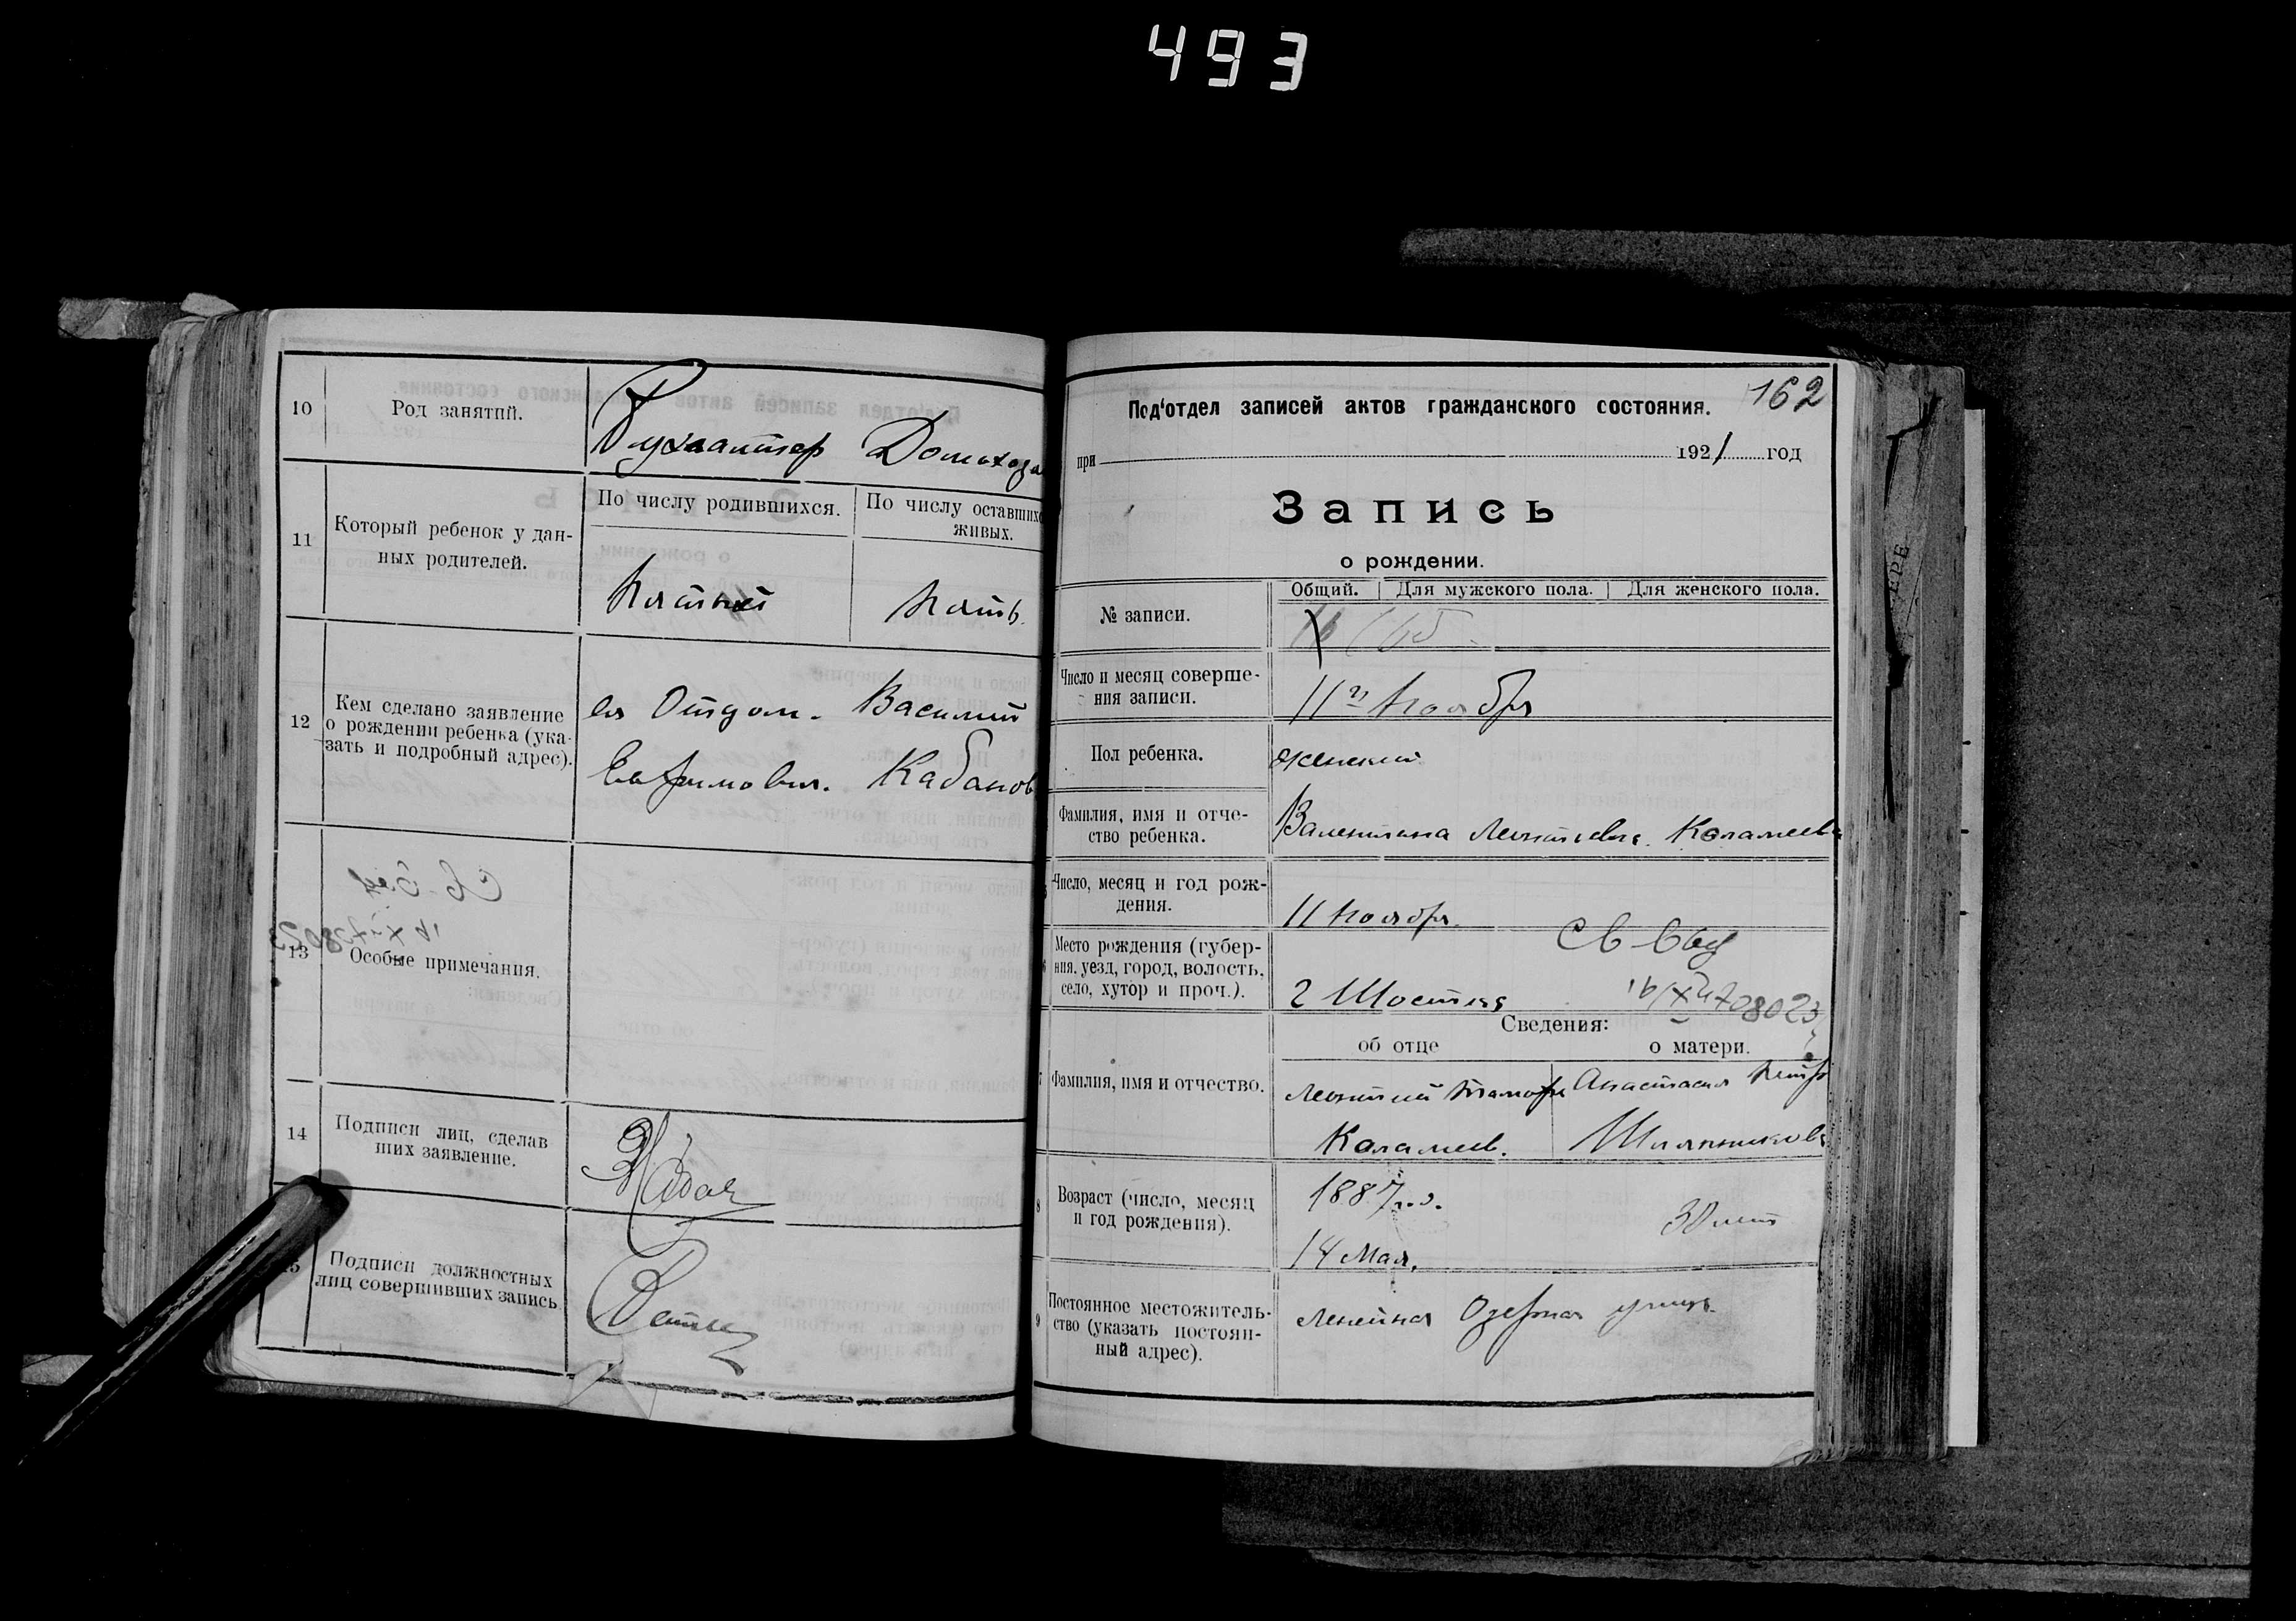 493
10
Род занятий.
Бухгалтер Домохоз
11
Который ребенок у дан-
ных родителей.
По числу родившихся.
По числу оставших
живых.
Пятый
Пять.
12
Кем сделано заявление
о рождении ребенка (ука-
зать и подробный адрес).
ея Отцом. Василий
Евфимович. Кабанов
13
Особые примечания.
14
Подписи лиц, сделав
ших заявление.
15
Подписи должностных
лиц совершивших запись
162
Под'отдел записей актов гражданского состояния.
при 1921 год
Запись
о рождении.
№ записи.
Общий. Для мужского пола. Для женского пола.
Число и месяц соверше-
ния записи.
11го Ноября
Пол ребенка.
женский
Фамилия, имя и отче-
ство ребенка.
Валентина Леонтиевна
Число, месяц и год рож-
дения.
11 Ноября.
Место рождения (губер-
ния, уезд, город, волость,
село, хутор и проч.).
г Шостка
Св-во выд
708023
Сведения:
об отце
о матери.
Фамилия, имя и отчество.
Леонтий
Анастасия Петр
Шляпникова
8
Возраст (число, месяц
и год рождения).
1887 г.
14 Мая.
30 лет
9
Постоянное местожитель-
ство (указать постоян-
ный адрес).
Озерная улица